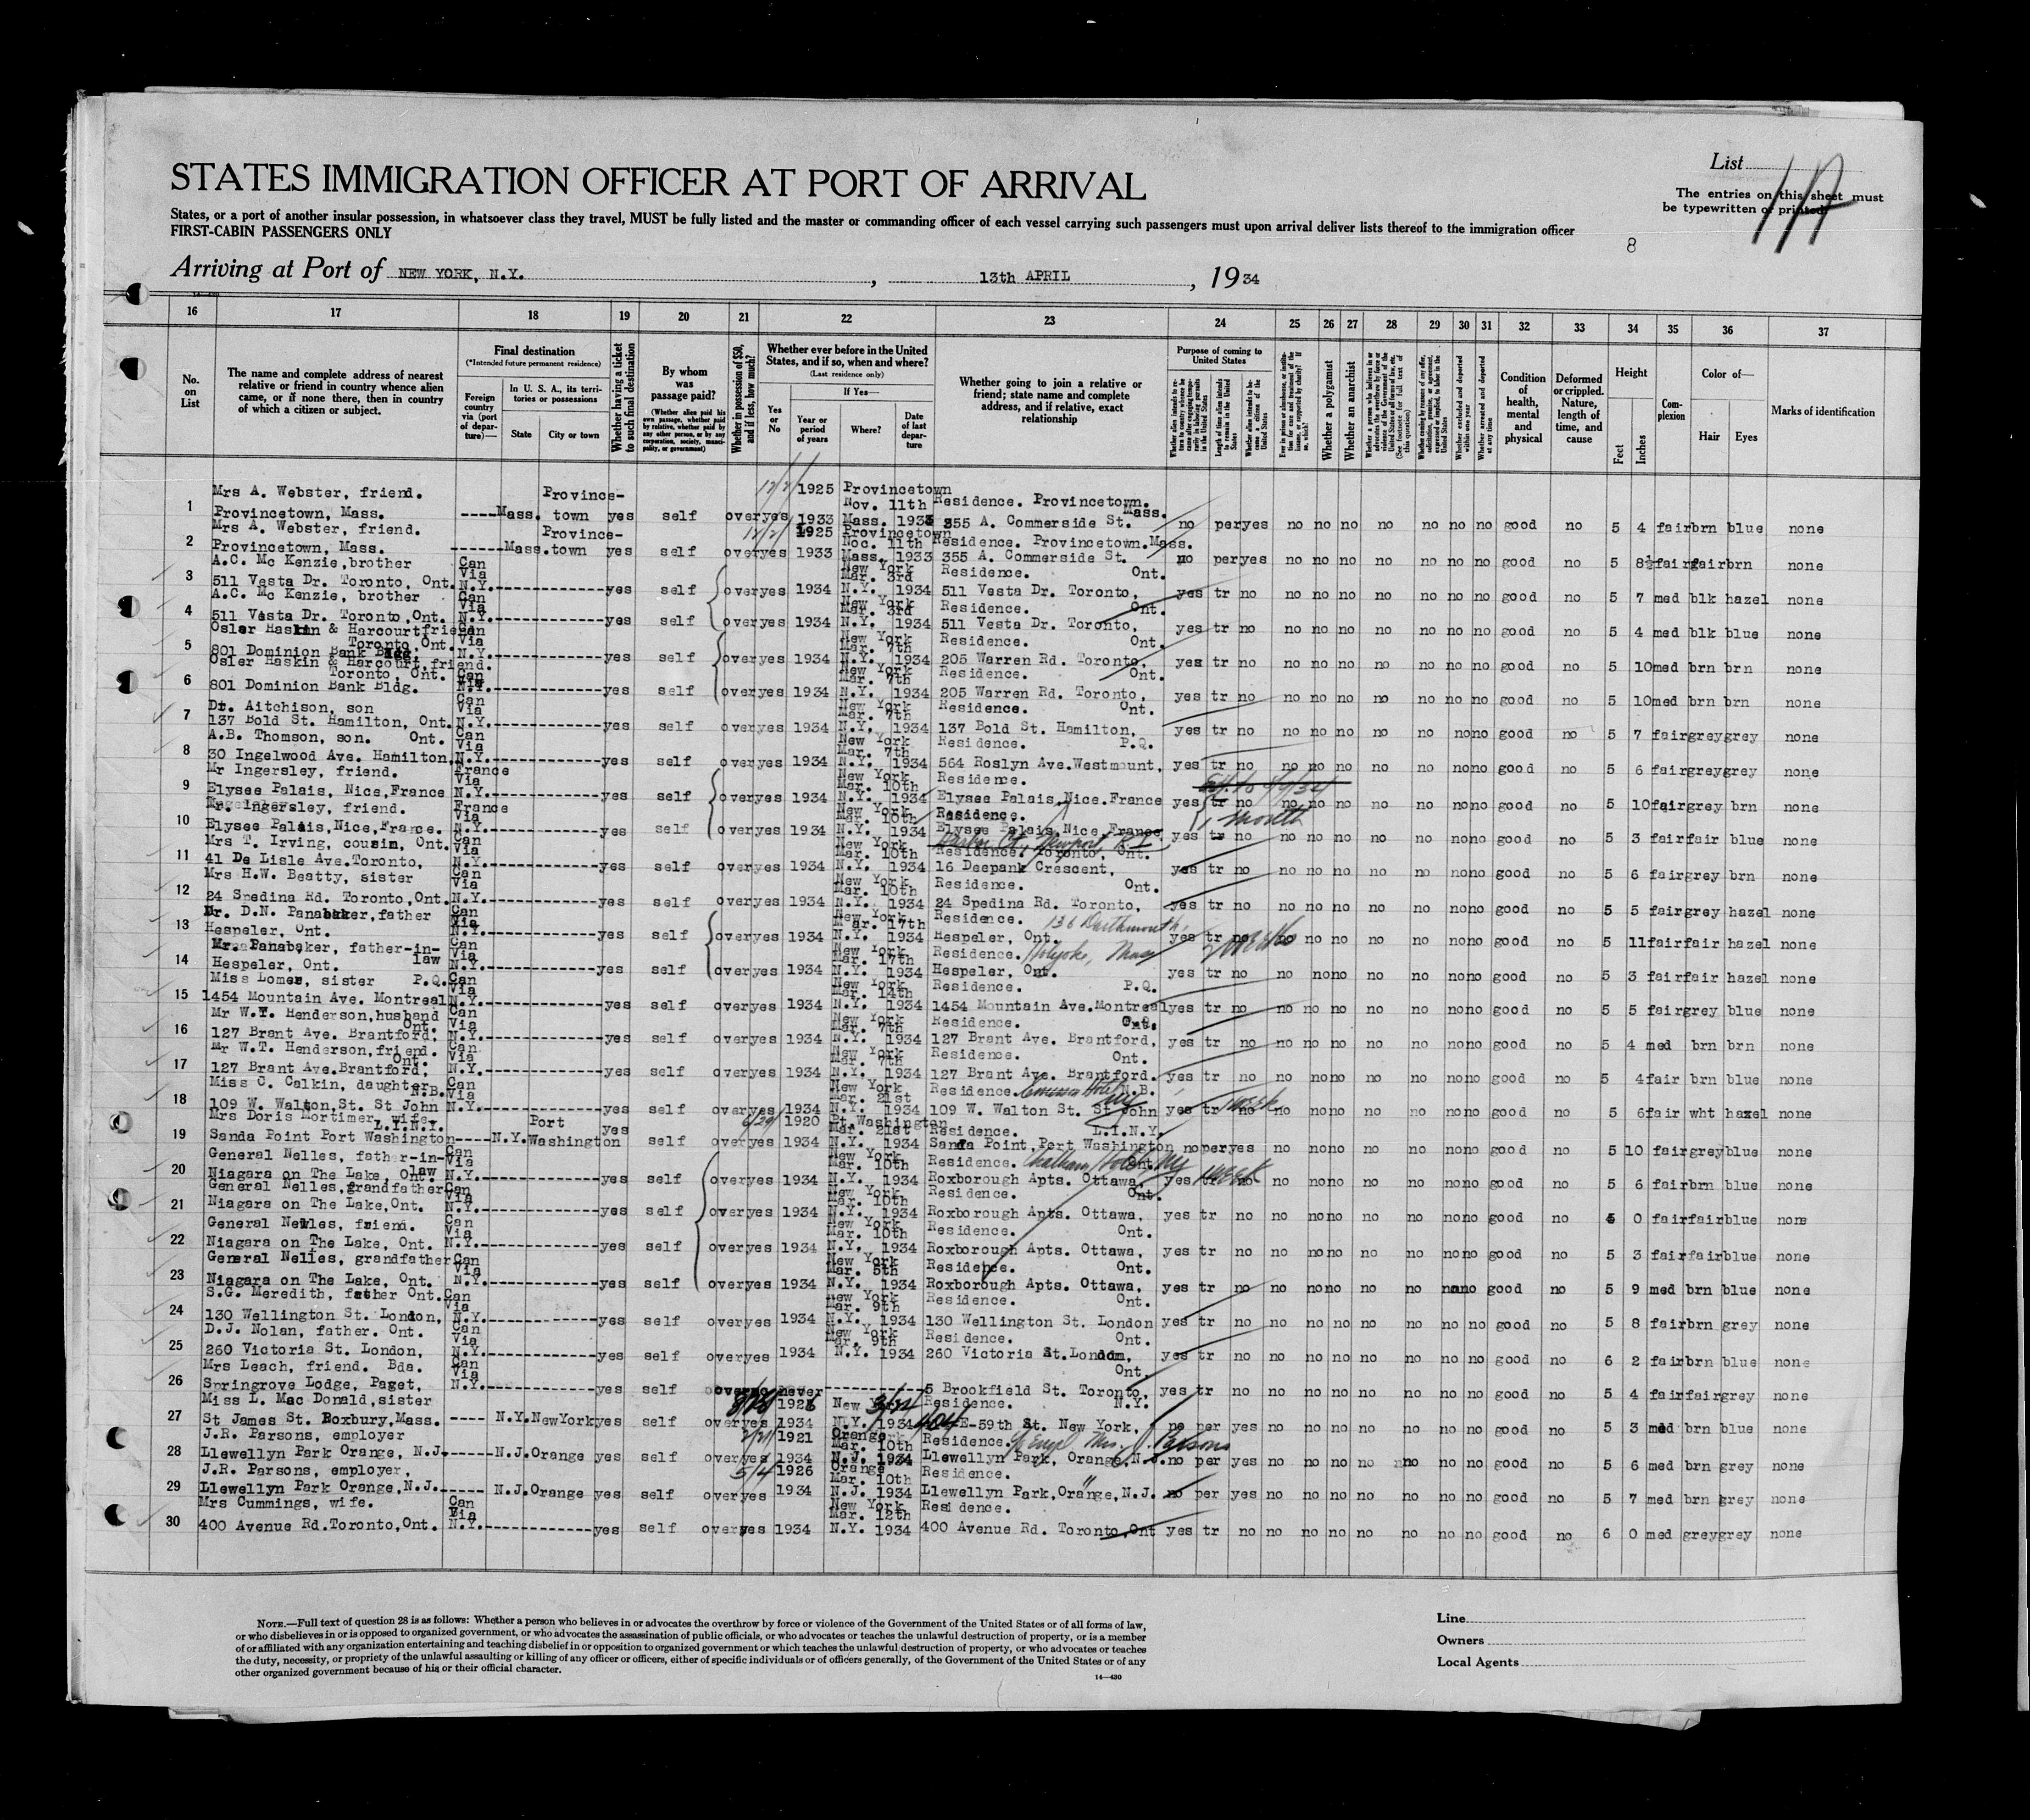 List
STATES IMMIGRATION OFFICER AT PORT OF ARRIVAL
The entries on this sheet must
be typewritten or printed.
States, or a port of another insular possession, in whatsoever class they travel, MUST be fully listed and the master or commanding officer of each vessel carrying such passengers must upon arrival deliver lists thereof to the immigration officer
FIRST-CABIN PASSENGERS ONLY
8
Arriving at Port of NEW YORK, N.Y. , 13th APRIL , 1934
16 17 18 19 20 21 22 23 24 25 26 27 28 29 30 31 32 33 34 35 36 37
No. on List
The name and complete address of nearest relative or friend in country whence alien came, or if none there, then in country of which a citizen or subject.
Final destination
(*Intended future permanent residence)
Foreign country via (port of departure)—
In U. S. A., its territories or possessions
State
City or town
Whether having a ticket to such final destination
By whom was passage paid?
(Whether alien paid his own passage, whether paid by relative, whether paid by any other person, or by any corporation, society, municipality, or government)
Whether in possession of $50, and if less, how much?
Whether ever before in the United States, and if so, when and where?
(Last residence only)
Yes or No
If Yes—
Year or period of years
Where?
Date of last departure
Whether going to join a relative or friend; state name and complete address, and if relative, exact relationship
Purpose of coming to United States
Length of time alien intends to remain in the United States
Whether alien intends to become a citizen of the United States
Whether a polygamist
Whether an anarchist
Whether excluded and deported within one year
Whether arrested and deported at any time
Condition of health, mental and physical
Deformed or crippled. Nature, length of time, and cause
Height
Feet
Inches
Complexion
Color of—
Hair
Eyes
Marks of identification
1 Mrs A. Webster, friend. Provincetown, Mass. ---- Mass. Province-town yes self over yes 1925 1933 Provincetown Mass. Nov. 11th Residence. Provincetown. Mass. 355 A. Commerside St. no per yes no no no no no no no good no 5 4 fair brn blue none
2 Mrs A. Webster, friend. Provincetown, Mass. ------ Mass. Province-town yes self over yes 1925 1933 Provincetown Mass. Noc. 11th 1933 Residence. Provincetown. Mass. 355 A. Commerside St. no per yes no no no no no no no good no 5 8½ fair fair brn none
3 A.C. Mc Kenzie, brother 511 Vesta Dr. Toronto, Ont. Can Via N.Y. yes self over yes 1934 New York N.Y. Mar. 3rd 1934 Residence. 511 Vesta Dr. Toronto, Ont. yes tr no no no no no no no no good no 5 7 med blk hazel none
4 A.C. Mc Kenzie, brother 511 Vesta Dr. Toronto, Ont. Can Via N.Y. yes self over yes 1934 New York N.Y. Mar. 3rd 1934 Residence. 511 Vesta Dr. Toronto, Ont. yes tr no no no no no no no no good no 5 4 med blk blue none
5 Osler Haskin & Harcourt friend 801 Dominion Bank Toronto, Ont. Can Via N.Y. yes self over yes 1934 New York N.Y. Mar. 7th 1934 Residence. 205 Warren Rd. Toronto, Ont. yes tr no no no no no no no no good no 5 10 med brn brn none
6 Osler Haskin & Harcourt, friend. 801 Dominion Bank Bldg. Toronto, Ont. Can Via N.Y. yes self over yes 1934 New York N.Y. Mar. 7th 1934 Residence. 205 Warren Rd. Toronto, Ont. yes tr no no no no no no no no good no 5 10 med brn brn none
7 Dr. Aitchison, son 137 Bold St. Hamilton, Ont. Can Via N.Y. yes self over yes 1934 New York N.Y. Mar. 7th 1934 Residence. 137 Bold St. Hamilton, Ont. yes tr no no no no no no no no good no 5 7 fair grey grey none
8 A.B. Thomson, son. Ont. 30 Ingelwood Ave. Hamilton, Can Via N.Y. yes self over yes 1934 New York N.Y. Mar. 7th 1934 Residence. P.Q. 564 Roslyn Ave. Westmount, yes tr no no no no no no no no good no 5 6 fair grey grey none
9 Mr Ingersley, friend. Elysee Palais, Nice, France France Via N.Y. yes self over yes 1934 New York N.Y. Mar. 10th 1934 Residence. Elysee Palais, Nice. France yes tr no no no no no no no no good no 5 10 fair grey brn none
10 Mr. Ingersley, friend. Elysee Palais, Nice, France. France Via N.Y. yes self over yes 1934 New York N.Y. Mar. 10th 1934 Residence. Elysee Palais, Nice, France Newport, R.I. yes tr no 1 month no no no no no no no good no 5 3 fair fair blue none
11 Mrs T. Irving, cousin, Ont. 41 De Lisle Ave. Toronto, Can Via N.Y. yes self over yes 1934 New York N.Y. Mar. 10th 1934 Residence. Toronto, Ont. 16 Deepank Crescent, yes tr no no no no no no no no good no 5 6 fair grey brn none
12 Mrs H.W. Beatty, sister 24 Spedina Rd. Toronto, Ont. Can Via N.Y. yes self over yes 1934 New York N.Y. Mar. 10th 1934 Residence. Ont. 24 Spedina Rd. Toronto, yes tr no no no no no no no no good no 5 5 fair grey hazel none
13 Mr. D.N. Panabaker, father Hespeler, Ont. Can Via N.Y. yes self over yes 1934 New York N.Y. Mar. 17th 1934 Residence. Hespeler, Ont. 136 Dartmouth, yes tr no no no no no no no no good no 5 11 fair fair hazel none
14 Mr. Panabaker, father-in-law Hespeler, Ont. Can Via N.Y. yes self over yes 1934 New York N.Y. Mar. 17th 1934 Residence. Holyoke, Mass Hespeler, Ont. yes tr no no no no no no no no good no 5 3 fair fair hazel none
15 Miss Lomer, sister P.Q. 1454 Mountain Ave. Montreal Can Via N.Y. yes self over yes 1934 New York N.Y. Mar. 14th 1934 Residence. P.Q. 1454 Mountain Ave. Montreal yes tr no no no no no no no no good no 5 5 fair grey blue none
16 Mr W.T. Henderson, husband 127 Brant Ave. Brantford, Ont. Can Via N.Y. yes self over yes 1934 New York N.Y. Mar. 7th 1934 Residence. Ont. 127 Brant Ave. Brantford, yes tr no no no no no no no no good no 5 4 med brn brn none
17 Mr W.T. Henderson, friend. 127 Brant Ave. Brantford, Ont. Can Via N.Y. yes self over yes 1934 New York N.Y. Mar. 7th 1934 Residence. Ont. 127 Brant Ave. Brantford. yes tr no no no no no no no no good no 5 4 fair brn blue none
18 Miss C. Calkin, daughter N.B. 109 W. Walton, St. St John Can Via N.Y. yes self over yes 1934 New York N.Y. Mar. 21st 1934 Residence. N.B. 109 W. Walton St. St John yes tr no 1 week no no no no no no no good no 5 6 fair wht hazel none
19 Mrs Doris Mortimer, wife. L.I.N.Y. Sanda Point Port Washington ---- N.Y. Port Washington yes self over yes 6/29 1920 1934 Pt. Washington N.Y. Mar. 21st 1934 Residence. L.I.N.Y. Sanda Point, Port Washington no per yes no no no no no no no good no 5 10 fair grey blue none
20 General Nelles, father-in-law Niagara on The Lake, Ont. Can Via N.Y. yes self over yes 1934 New York N.Y. Mar. 10th 1934 Residence. Chatham Hotel, NY Ont. Roxborough Apts. Ottawa, yes tr no 1 week no no no no no no no good no 5 6 fair brn blue none
21 General Nelles, grandfather Niagara on The Lake, Ont. Can Via N.Y. yes self over yes 1934 New York N.Y. Mar. 10th 1934 Residence. Ont. Roxborough Apts. Ottawa, yes tr no no no no no no no no good no 5 0 fair fair blue none
22 General Nelles, friend. Niagara on The Lake, Ont. Can Via N.Y. yes self over yes 1934 New York N.Y. Mar. 10th 1934 Residence. Ont. Roxborough Apts. Ottawa, yes tr no no no no no no no no good no 5 3 fair fair blue none
23 General Nelles, grandfather Niagara on The Lake, Ont. Can Via N.Y. yes self over yes 1934 New York N.Y. Mar. 5th 1934 Residence. Ont. Roxborough Apts. Ottawa, yes tr no no no no no no no no good no 5 9 med brn blue none
24 S.G. Meredith, father Ont. 130 Wellington St. London, Can Via N.Y. yes self over yes 1934 New York N.Y. Mar. 9th 1934 Residence. Ont. 130 Wellington St. London yes tr no no no no no no no no good no 5 8 fair brn grey none
25 D.J. Nolan, father. Ont. 260 Victoria St. London, Can Via N.Y. yes self over yes 1934 New York N.Y. Mar. 9th 1934 Residence. Ont. 260 Victoria St. London, yes tr no no no no no no no no good no 6 2 fair brn blue none
26 Mrs Leach, friend. Bda. Springrove Lodge, Paget, Can Via N.Y. yes self over no never ---------- Ont. 5 Brookfield St. Toronto, yes tr no no no no no no no no good no 5 4 fair fair grey none
27 Miss L. Mac Donald, sister St James St. Roxbury, Mass. ---- N.Y. New York yes self over yes 1934 New N.Y. 1934 Residence. N.Y. 404 E-59th St. New York, no per yes no no no no no no no good no 5 3 med brn blue none
28 J.R. Parsons, employer Llewellyn Park Orange, N.J. ------ N.J. Orange yes self over yes 1921 1934 Orange N.J. Mar. 10th 1934 Residence. Mrs. J. Parsons Llewellyn Park, Orange, N.J. no per yes no no no no no no no good no 5 6 med brn grey none
29 J.R. Parsons, employer, Llewellyn Park Orange, N.J. ----- N.J. Orange yes self over yes 5/4 1926 1934 Orange N.J. Mar. 10th 1934 Residence. Llewellyn Park, Orange, N.J. no per yes no no no no no no no good no 5 7 med brn grey none
30 Mrs Cummings, wife. 400 Avenue Rd. Toronto, Ont. Can Via N.Y. yes self over yes 1934 New York N.Y. Mar. 12th 1934 Residence. 400 Avenue Rd. Toronto, Ont yes tr no no no no no no no no good no 6 0 med grey grey none
NOTE.—Full text of question 28 is as follows: Whether a person who believes in or advocates the overthrow by force or violence of the Government of the United States or of all forms of law,
or who disbelieves in or is opposed to organized government, or who advocates the assassination of public officials, or who advocates or teaches the unlawful destruction of property, or is a member
of or affiliated with any organization entertaining and teaching disbelief in or opposition to organized government or which teaches the unlawful destruction of property, or who advocates or teaches
the duty, necessity, or propriety of the unlawful assaulting or killing of any officer or officers, either of specific individuals or of officers generally, of the Government of the United States or of any
other organized government because of his or their official character.
14—430
Line
Owners
Local Agents